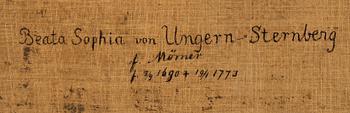 Beata Sophia von Ungern-Sternberg
f. Mörner
f. 3/9 1690 + 19/4 1773